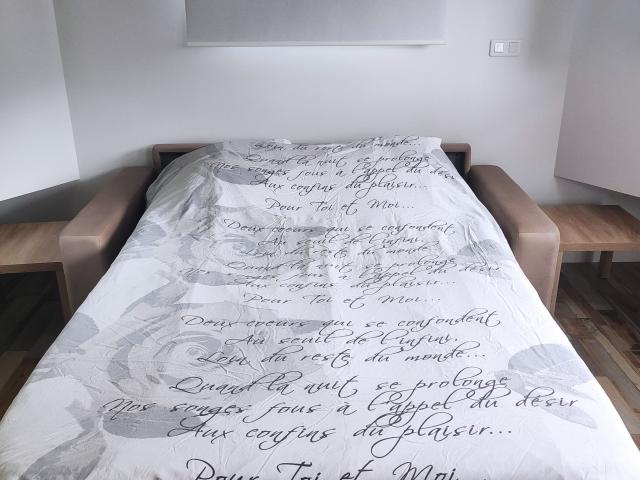 Loin du reste du monde...
Quand la nuit se prolonge
Nos songes fous à l'appel du désir
Aux confins du plaisir...
Pour Toi et Moi...
Deux coeurs qui se confondent
Au seuil de l'infini,
Loin du reste du monde...
Quand la nuit se prolonge
Nos songes fous à l'appel du désir
Aux confins du plaisir...
Pour Toi et Moi...
Deux coeurs qui se confondent
Au seuil de l'infini,
Loin du reste du monde...
Quand la nuit se prolonge
Nos songes fous à l'appel du désir
Aux confins du plaisir...
Pour Toi et Moi...